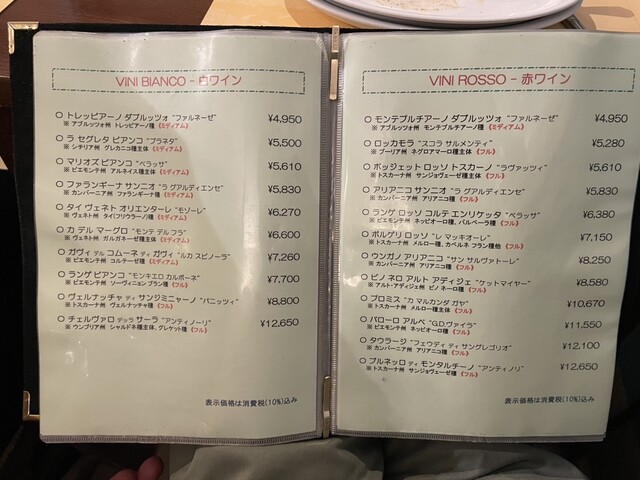 VINI BIANCO - 白ワイン
○ トレッビアーノ ダブルッツォ "ファルネーゼ" ¥4,950
※ アブルッツォ州 トレッビアーノ種 (ミディアム)
○ ラ セグレタ ビアンコ "プラネタ" ¥5,500
※ シチリア州 グレカニコ種主体 (ミディアム)
○ マリオズ ビアンコ "ベラッザ" ¥5,610
※ ピエモンテ州 アルネイス種主体 (ミディアム)
○ ファランギーナ サンニオ "ラ グアルディエンセ" ¥5,830
※ カンパーニア州 ファランギーナ種 (ミディアム)
○ タイ ヴェネト オリエンターレ "モゾーレ" ¥6,270
※ ヴェネト州 タイ(フリウラーノ)種 (ミディアム)
○ カ デル マーグロ "モンテ デル フラ" ¥6,600
※ ヴェネト州 ガルガネーゼ種主体 (ミディアム)
○ ガヴィ デル コムーネ ディ ガヴィ "ルカ スピノーラ" ¥7,260
※ ピエモンテ州 コルテーゼ種 (ミディアム)
○ ランゲ ビアンコ "モンキエロ カルボーネ" ¥7,700
※ ピエモンテ州 ソーヴィニョン ブラン種 (フル)
○ ヴェルナッチャ ディ サンジミニャーノ "パニッツィ" ¥8,800
※ トスカーナ州 ヴェルナッチャ種 (フル)
○ チェルヴァロ デッラ サーラ "アンティノーリ" ¥12,650
※ ウンブリア州 シャルドネ種主体、グレケット種 (フル)
表示価格は消費税(10%)込み
VINI ROSSO - 赤ワイン
○ モンテプルチアーノ ダブルッツォ "ファルネーゼ" ¥4,950
※ アブルッツォ州 モンテプルチアーノ種 (ミディアム)
○ ロッカモラ "スコラ サルメンティ" ¥5,280
※ プーリア州 ネグロアマーロ種主体 (フル)
○ ポッジェット ロッソ トスカーノ "ラヴァッツィ" ¥5,610
※ トスカーナ州 サンジョヴェーゼ種主体 (フル)
○ アリアニコ サンニオ "ラ グアルディエンセ" ¥5,830
※ カンパーニア州 アリアニコ種 (フル)
○ ランゲ ロッソ コルテ エンリケッタ "ベラッザ" ¥6,380
※ ピエモンテ州 ネッビオーロ種、バルベーラ種 (フル)
○ ボルゲリ ロッソ "レ マッキオーレ" ¥7,150
※ トスカーナ州 メルロー種、カベルネ フラン種他 (フル)
○ ウンガノ アリアニコ "サン サルヴァトーレ" ¥8,250
※ カンパーニア州 アリアニコ種 (フル)
○ ピノ ネロ アルト アディジェ "ケットマイヤー" ¥8,580
※ アルト・アディジェ州 ピノ ネーロ種 (フル)
○ プロミス "カ マルカンダ ガヤ" ¥10,670
※ トスカーナ州 メルロー種主体 (フル)
○ バローロ アルベ "G.D.ヴァイラ" ¥11,550
※ ピエモンテ州 ネッビオーロ種 (フル)
○ タウラージ "フェウディ ディ サングレゴリオ" ¥12,100
※ カンパーニア州 アリアニコ種 (フル)
○ ブルネッロ ディ モンタルチーノ "アンティノリ" ¥12,650
※ トスカーナ州 サンジョヴェーゼ種 (フル)
表示価格は消費税(10%)込み